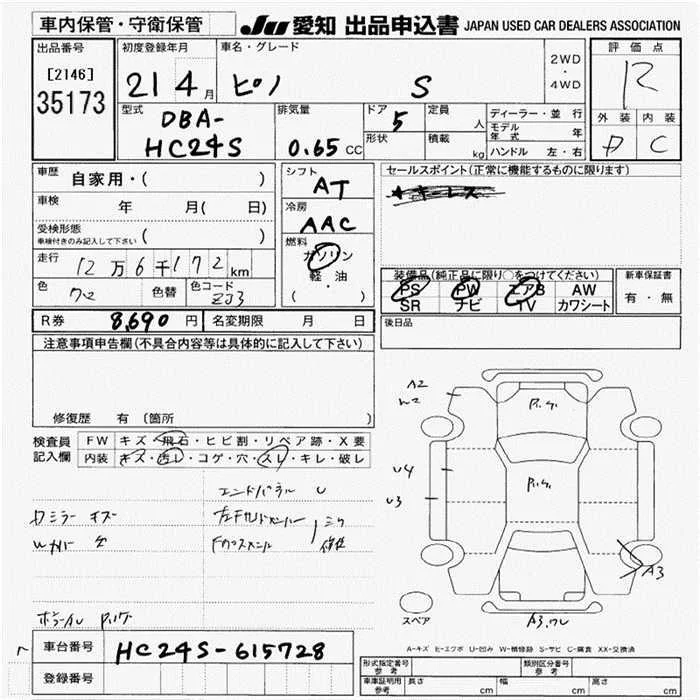 車内保管・守衛保管
JU 愛知 出品申込書 JAPAN USED CAR DEALERS ASSOCIATION
出品番号
[2146]
35173
初度登録年月
21 4月
車名・グレード
ピノ S
2WD
・
4WD
評価点
R
外装 内装
D C
型式
DBA-
HC24S
排気量
0.65 CC
ドア 5
形状
定員 人
積載 kg
ディーラー・並行
モデル年式 年
ハンドル 左・右
車歴 自家用・( )
車検 年 月( 日)
受検形態
車検付きのみ記入して下さい ( )
走行 12万6千172 km
色 クロ 色替 色コード ZJ3
シフト
AT
冷房
AAC
燃料
ガソリン
軽・油
( )
セールスポイント(正常に機能するものに限ります)
★キーレス
装備品(純正品に限り○をつけてください)
PS PW エアB AW
SR ナビ TV カワシート
新車保証書
有・無
R券 8,690円 名変期限 月 日
後日品
注意事項申告欄(不具合内容等は具体的に記入して下さい)
修復歴 有 (箇所 )
検査員
記入欄
FW キズ・飛石・ヒビ割・リペア跡・X要
内装 キズ・汚レ・コゲ・穴・スレ・キレ・破レ
エンドパネル U
ミラー キズ
A2
W2
P.レケ
U4
U3
P.レケ
A3
スペア
A3.ワレ
A-キズ E-エクボ U-凹み W-補修跡 S-サビ C-腐食 XX-交換済
車台番号 HC24S-615728
登録番号
形式指定番号
参考
類別区分番号
参考
車庫証明用
参考
長さ cm 幅 cm 高さ cm